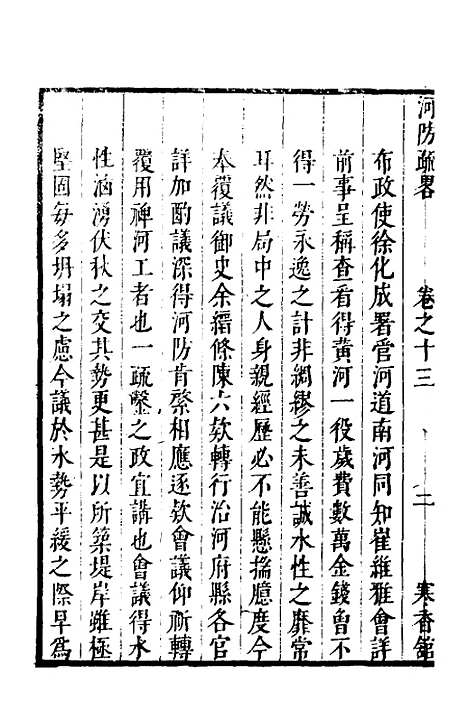 河防疏畧 卷之十三 二 寒香館
布政使徐化成署管河道南河同知崔維雅會詳
前事呈稱查看得黃河一役歲費數萬金錢曾不
得一勞永逸之計非綢繆之未善誠水性之靡常
耳然非局中之人身親經歷必不能懸揣臆度今
奉覆議御史余縉條陳六欵轉行治河府縣各官
詳加酌議深得河防肯綮相應逐欵會議仰祈轉
覆用裨河工者也一疏鑿之政宜講也會議得水
性洶湧伏秋之交其勢更甚是以所築堤岸雖極
堅固每多坍塌之慮今議於水勢平緩之際早為